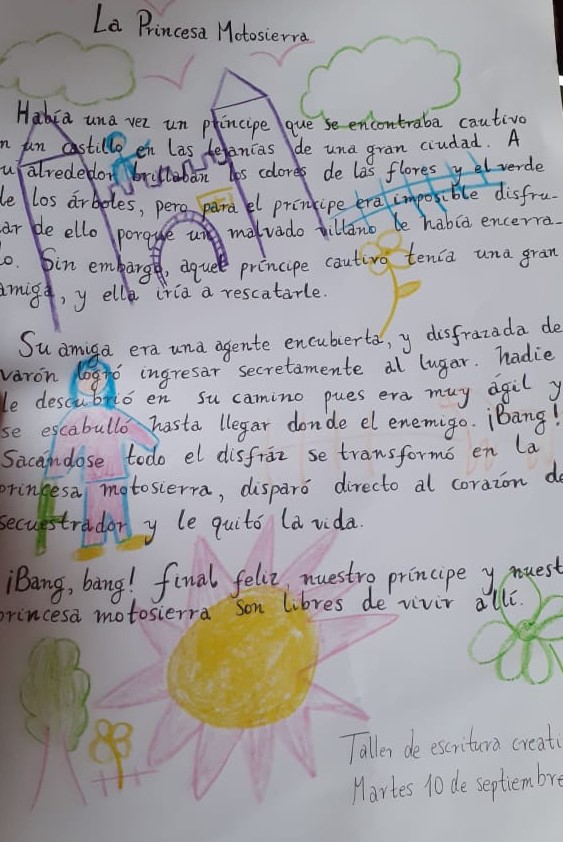 La Princesa Motosierra
Había una vez un príncipe que se encontraba cautivo
n un castillo en las lejanías de una gran ciudad. A
u alrededor brillaban los colores de las flores y el verde
de los árboles, pero para el príncipe era imposible disfru-
ar de ello porque un malvado villano le había encerra-
o. Sin embargo, aquel príncipe cautivo tenía una gran
amiga, y ella iría a rescatarle.
Su amiga era una agente encubierta, y disfrazada de
varón logró ingresar secretamente al lugar. Nadie
le descubrió en su camino pues era muy ágil y
se escabulló hasta llegar donde el enemigo. ¡Bang!
Sacándose todo el disfráz se transformó en la
princesa motosierra, disparó directo al corazón de
secuestrador y le quitó la vida.
¡Bang, bang! final feliz, nuestro príncipe y nuest
princesa motosierra son libres de vivir allí.
Taller de escritura creati
Martes 10 de septiembre